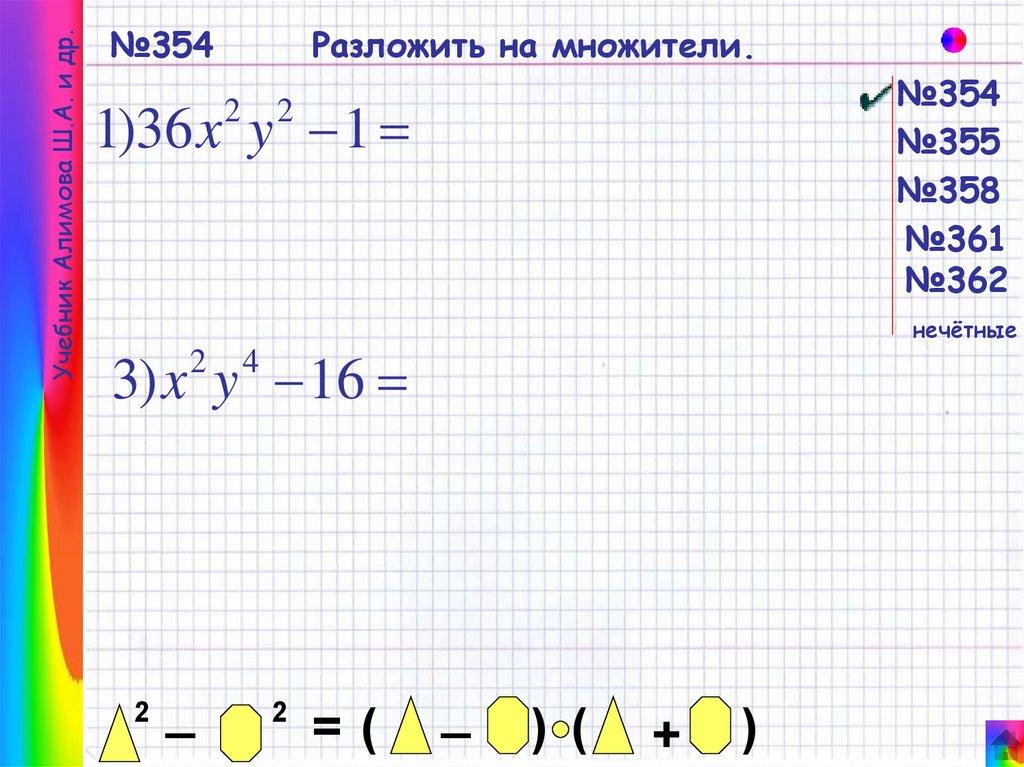 Учебник Алимова Ш.А. и др.
№354 Разложить на множители.
1)36x²y² − 1 =
3)x²y⁴ − 16 =
№354
№355
№358
№361
№362
нечётные
² − ² = ( − )•( + )